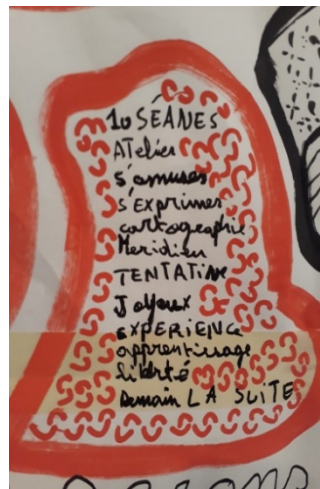 10 SÉANES
Atelier
s'amuser
s'Exprimer
cartographie
Meridien
TENTATIVE
Joyeux
EXPERIENCE
apprentissage
liberté
Demain LA SUITE